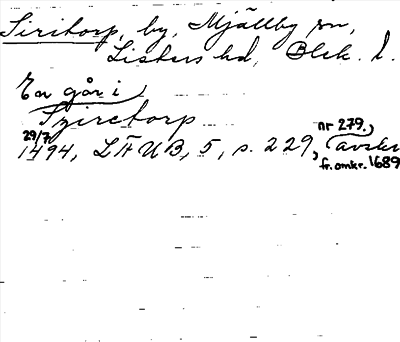 Siritorp, by, Mjällby sn,
Listers hd, Blek. l.
En går i
Syiretorp
29/7
1494, LÄUB, 5, s. 229, nr 279., (avskr
fr. omkr. 1689